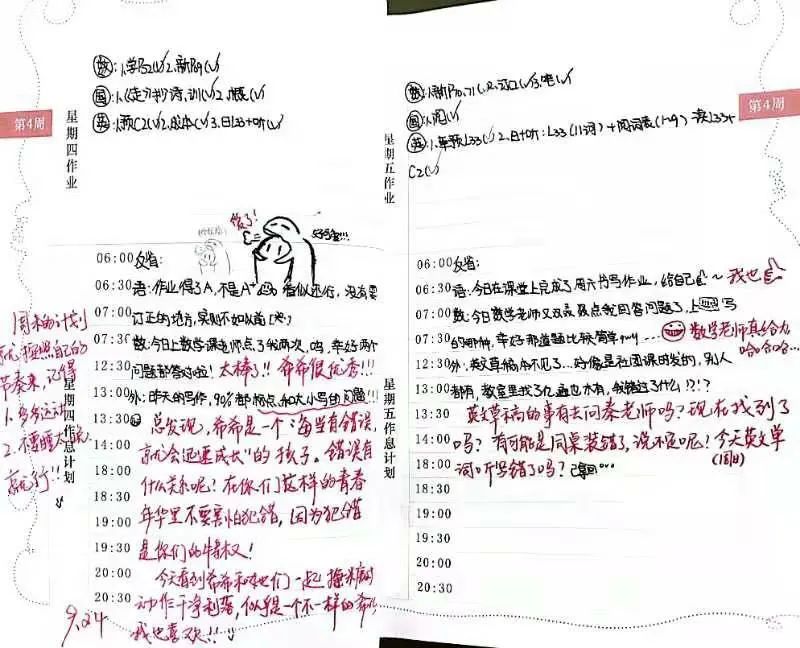 第4周
星期四作业
数:1.学门2(√) 2.新网(√)
国:1.《走》抄诗,训(√) 2.概(√)
英:1.预C2(√) 2.成本(√) 3.日L33+听(√)
傻了!
好可怜!!!
06:00 反省:
06:30 语:作业得了A,不是A+ 看似还行,没有要
07:00 订正的地方,实则不如以前
07:30 数:今日上数学课老师点了我两次,呜,幸好两个
12:30 问题都答对啦! 太棒了!! 希希很优秀!!!
13:00 外:昨天的写作,90%都标点和大小写的问题!!!
13:30 总发现,希希是一个"每当有错误,
14:00 就会迅速成长"的孩子。错误有
18:00 什么关系呢?在你们这样的青春
18:30 年华里不要害怕犯错,因为犯错
19:00 是你们的特权!
19:30
20:00 今天看到希希和她们一起
20:30 动作干净利落,似乎是一个不一样的希希,
我也喜欢!!!
星期四作息计划
周末的计划
就按照自己的
节奏来,记得
1.多多运动
2.不要睡太晚
就行!!
9.24
第4周
星期五作业
国:1.阅(√)
英:1.单预L33(√) 2.日+听:L33(11词)+阅词表(1~9) 读L33+
C2(√)
06:00 反省:
06:30 语:今日在课堂上完成了周六书写作业,给自己 ~ 我也
07:00 数:今日数学老师又双叒叕点我回答问题了,上 写
07:30 的那种,幸好那道题比较简单 数学老师真给力
哈哈哈...
12:30 外:英文草稿本不见了...好像是社团课时发的,别人
13:00 都有,教室里找了几遍也木有,我错过了什么!?!?
13:30 英文草稿的事有去问秦老师吗?现在找到了
14:00 吗?有可能是同桌装错了,说不定呢!今天英文单
18:00 词听写错了吗?
(周五)
18:30
19:00
19:30
20:00
20:30
星期五作息计划